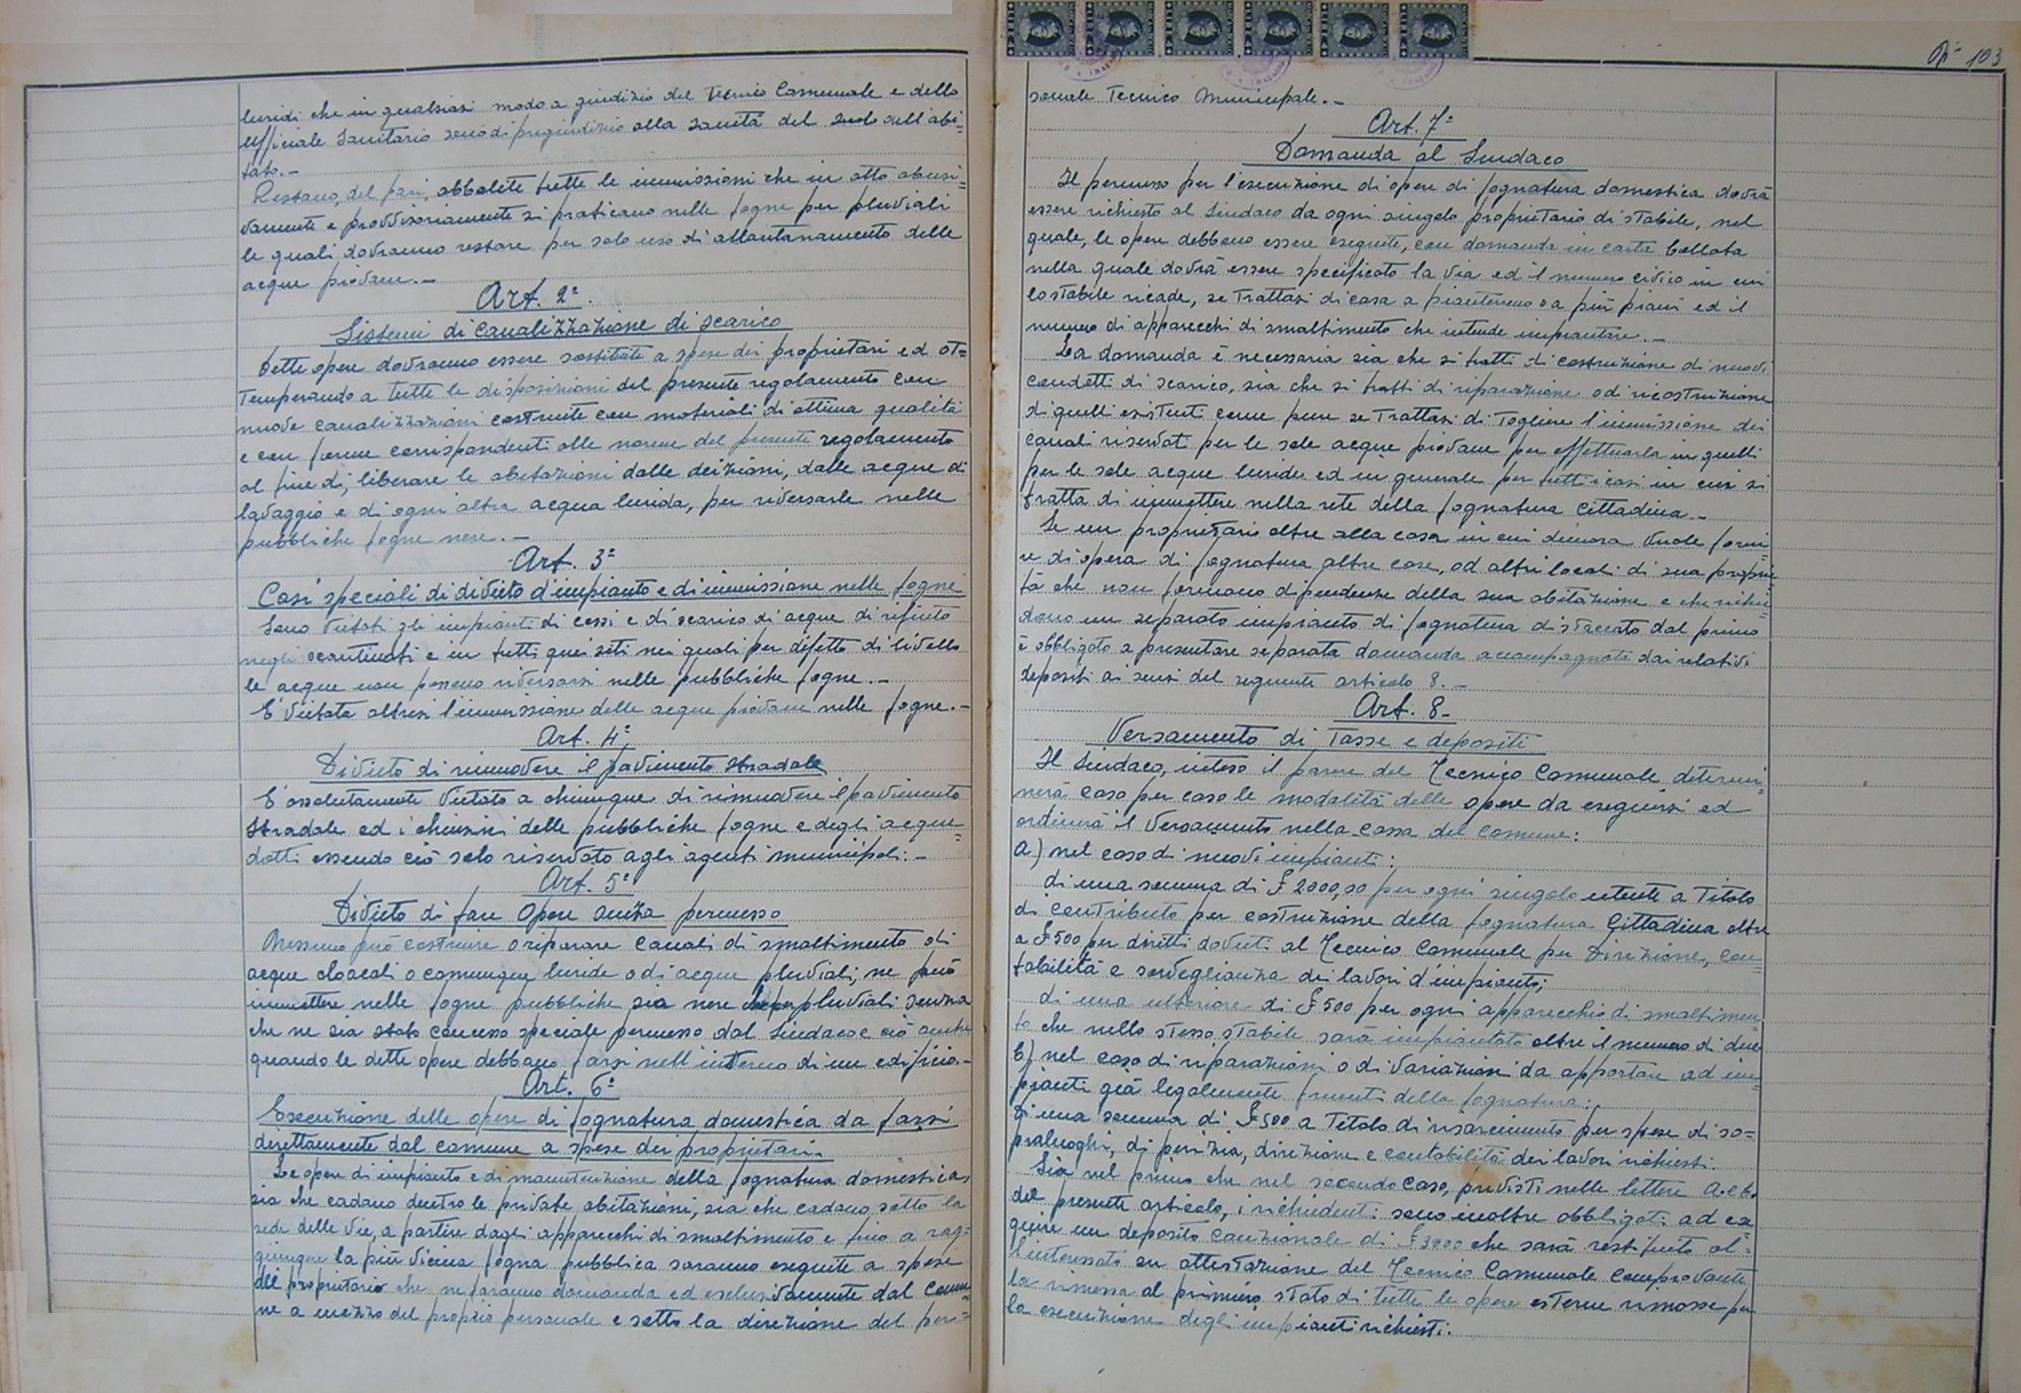 luridi che in qualsiasi modo a giudizio del Tecnico Comunale e dello
Ufficiale Sanitario sono di pregiudizio alla sanità del suolo nell'abi=
tato.-
Restano, del pari, abbolite tutte le immissioni che in atto abusi=
vamente e provvisoriamente si praticano nelle fogne per pluviali
le quali dovranno restare per solo uso di allontanamento delle
acque piovane.-
Art. 2°.
Sistemi di canalizzazione di scarico
Dette opere dovranno essere sostituite a spese dei proprietari ed ot=
temperando a tutte le disposizioni del presente regolamento con
nuove canalizzazioni costruite con materiali di ottima qualità
e con forme corrispondenti alle norme del presente regolamento
al fine di, liberare le abitazioni dalle deizioni, dalle acque di
lavaggio e di ogni altra acqua lurida, per riversarle nelle
pubbliche fogne nere.-
Art. 3°
Casi speciali di divieto d'impianto e di immissione nelle fogne
Sono vietati gli impianti di cessi e di scarico di acque di rifiuto
negli scantinati e in tutti quei siti nei quali per difetto di livello
le acque non possono riversarsi nelle pubbliche fogne.-
E' vietata altresi l'immissione delle acque piovane nelle fogne.-
Art. 4°
Divieto di rimuovere il pavimento stradale
E' assolutamente vietato a chiunque di rimuovere il pavimento
stradale ed i chiusini delle pubbliche fogne e degli acque=
dotti essendo ciò solo riservato agli agenti municipali.-
Art. 5°
Divieto di fare opere senza permesso
Nessuno può costruire o riparare canali di smaltimento di
acque cloacali o comunque luride o di acque pluviali; ne può
immettere nelle fogne pubbliche sia nere che per pluviali senza
che ne sia stato concesso speciale permesso dal Sindaco e ciò anche
quando le dette opere debbano farsi nell'interno di un edificio.-
Art. 6°
Esecuzione delle opere di fognatura domestica da farsi
direttamente dal comune a spese dei proprietari.
Le opere di impianto e di manutenzione della fognatura domestica,
sia che cadano dentro le private abitazioni, sia che cadano sotto la
sede delle vie, a partire dagli apparecchi di smaltimento e fino a rag=
giungere la più vicina fogna pubblica saranno eseguite a spese
del proprietario che ne faranno domanda ed esclusivamente dal comu=
ne a mezzo del proprio personale e sotto la direzione del per=
N° 103
sonale Tecnico Municipale.-
Art. 7°
Domanda al Sindaco
Il permesso per l'esecuzione di opere di fognatura domestica dovrà
essere richiesto al Sindaco da ogni singolo proprietario di stabile, nel
quale, le opere debbono essere eseguite, con domanda in carta bollata
nella quale dovrà essere specificato la via ed il numero civico in cui
lo stabile ricade, se trattasi di casa a pianterreno o a più piani ed il
numero di apparecchi di smaltimento che intende impiantare.-
La domanda è necessaria sia che si tratti di costruzione di nuovi
condotti di scarico, sia che si tratti di riparazione o di ricostruzione
di quelli esistenti come pure se trattasi di togliere l'immissione dei
canali riservati per le sole acque piovane per effettuarla in quelli
per le sole acque luride ed in generale per tutti i casi in cui si
tratta di immettere nella rete della fognatura cittadina.-
Se un proprietario oltre alla casa in cui dimora vuole forni=
re di opera di fognatura altre case, od altri locali di sua proprie
tà che non formano dipendenze della sua abitazione e che richie=
dono un separato impianto di fognatura distaccato dal primo
è obbligato a presentare separata domanda accompagnata dai relativi
depositi ai sensi del seguente articolo 8.-
Art. 8-
Versamento di Tasse e depositi
Il Sindaco, inteso il parere del Tecnico Comunale determi=
nerà caso per caso le modalità delle opere da eseguirsi ed
ordinerà il versamento nella cassa del comune:
a) nel caso di nuovi impianti:
di una somma di £ 2000,00 per ogni singolo utente a titolo
di contributo per costruzione della fognatura Cittadina oltre
a £ 500 per diritti dovuti al Tecnico Comunale per Direzione, con=
tabilità e sorveglianza dei lavori d'impianto;
di una ulteriore di £ 500 per ogni apparecchio di smaltimen=
to che nello stesso stabile sarà impiantato oltre il numero di due
b) nel caso di riparazioni o di variazioni da apportare ad im=
pianti già legalmente fruenti della fognatura:
di una somma di £ 500 a titolo di risarcimento per spese di so=
praluoghi, di perizia, direzione e contabilità dei lavori richiesti.
Sia nel primo che nel secondo caso, previsti nelle lettere a. e b.
del presente articolo, i richiedenti sono inoltre obbligati ad ese
guire un deposito cauzionale di £ 3000 che sarà restituito al=
l'interessato su attestazione del Tecnico Comunale comprovante
la rimessa al primiero stato di tutte le opere esterne rimosse per
la esecuzione degli impianti richiesti.